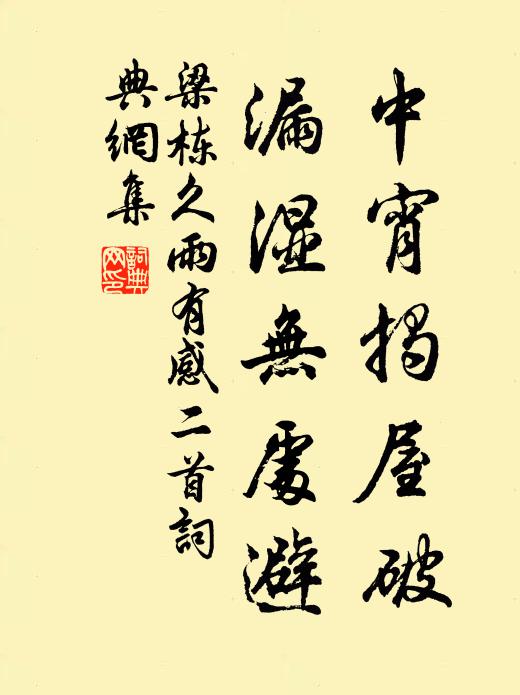 中宵揭屋破
漏湿無處避
梁棟久雨有感二首詞
典網集
詞典
网印